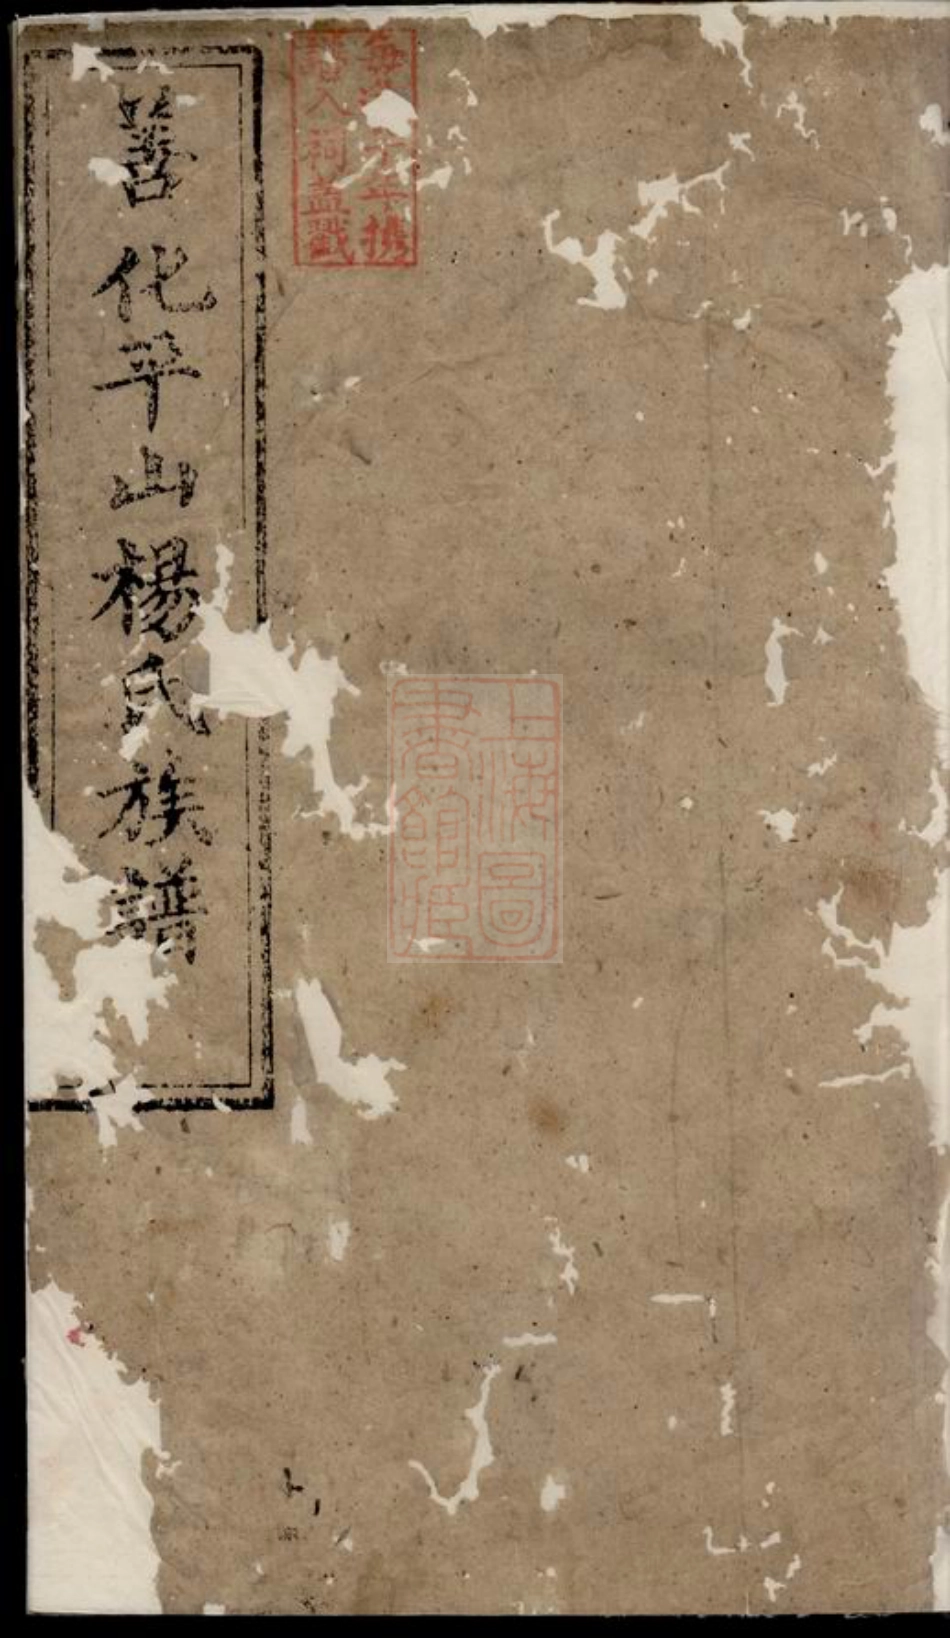 善化平山楊氏族譜
年攜
譜入祠蓋戳
上海圖
書館藏